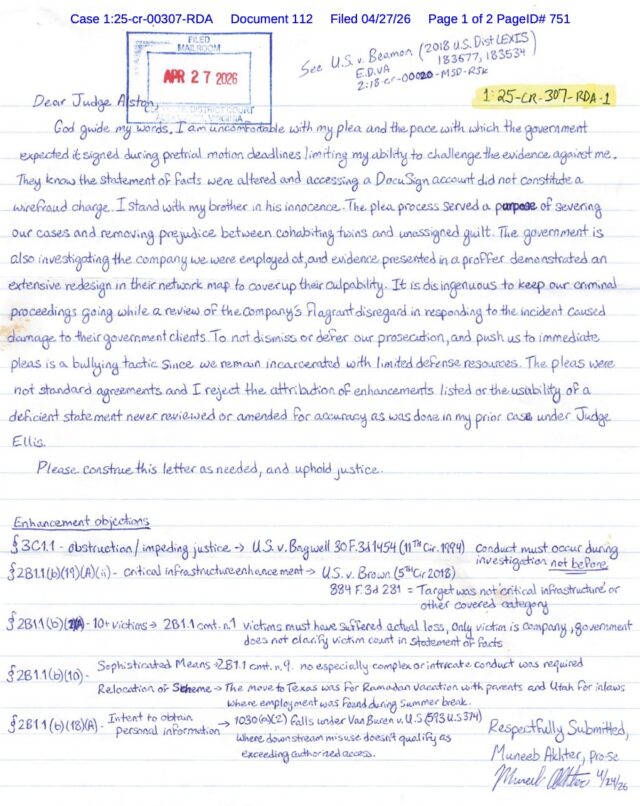 Case 1:25-cr-00307-RDA Document 112 Filed 04/27/26 Page 1 of 2 PageID# 751
FILED
MAILROOM
APR 27 2026
DISTRICT COURT
VIRGINIA
See U.S. v. Beamon (2018 U.S. Dist LEXIS)
E.D.VA 183677, 183534
2:18-cr-00020-MSD-RSK
1:25-CR-307-RDA-1
Dear Judge Alston,
God guide my words. I am uncomfortable with my plea and the pace with which the government
expected it signed during pretrial motion deadlines limiting my ability to challenge the evidence against me.
They know the statement of facts were altered and accessing a DocuSign account did not constitute a
wirefraud charge. I stand with my brother in his innocence. The plea process served a purpose of severing
our cases and removing prejudice between cohabiting twins and unassigned guilt. The government is
also investigating the company we were employed at, and evidence presented in a proffer demonstrated an
extensive redesign in their network map to cover up their culpability. It is disingenuous to keep our criminal
proceedings going while a review of the company's flagrant disregard in responding to the incident caused
damage to their government clients. To not dismiss or defer our prosecution, and push us to immediate
pleas is a bullying tactic since we remain incarcerated with limited defense resources. The pleas were
not standard agreements and I reject the attribution of enhancements listed or the usability of a
deficient statement never reviewed or amended for accuracy as was done in my prior case under Judge
Ellis.
Please construe this letter as needed, and uphold justice.
Enhancement objections
§3C1.1 - obstruction/impeding justice → U.S. v. Bagwell 30 F.3d 1454 (11TH Cir. 1994) conduct must occur during
investigation not before
§2B1.1(b)(19)(A)(ii) - critical infrastructure enhancement → U.S. v. Brown (5th Cir 2018)
884 F.3d 281 = Target was not 'critical infrastructure' or
other covered category
§2B1.1(b)(2)(A) - 10+ victims → 2B1.1 cmt. n.1 victims must have suffered actual loss, only victim is company, government
does not clarify victim count in statement of facts
§2B1.1(b)(10) - Sophisticated Means → 2B1.1 cmt. n.9. no especially complex or intricate conduct was required
Relocation of Scheme → The move to Texas was for Ramadan vacation with parents and Utah for inlaws
where employment was found during summer break.
§2B1.1(b)(18)(A) - Intent to obtain personal information → 1030(a)(2) falls under Van Buren v. U.S (593 U.S 374)
where downstream misuse doesn't qualify as
exceeding authorized access.
Respectfully Submitted,
Muneeb Akhter, pro-se
Muneeb Akhter 4/24/26